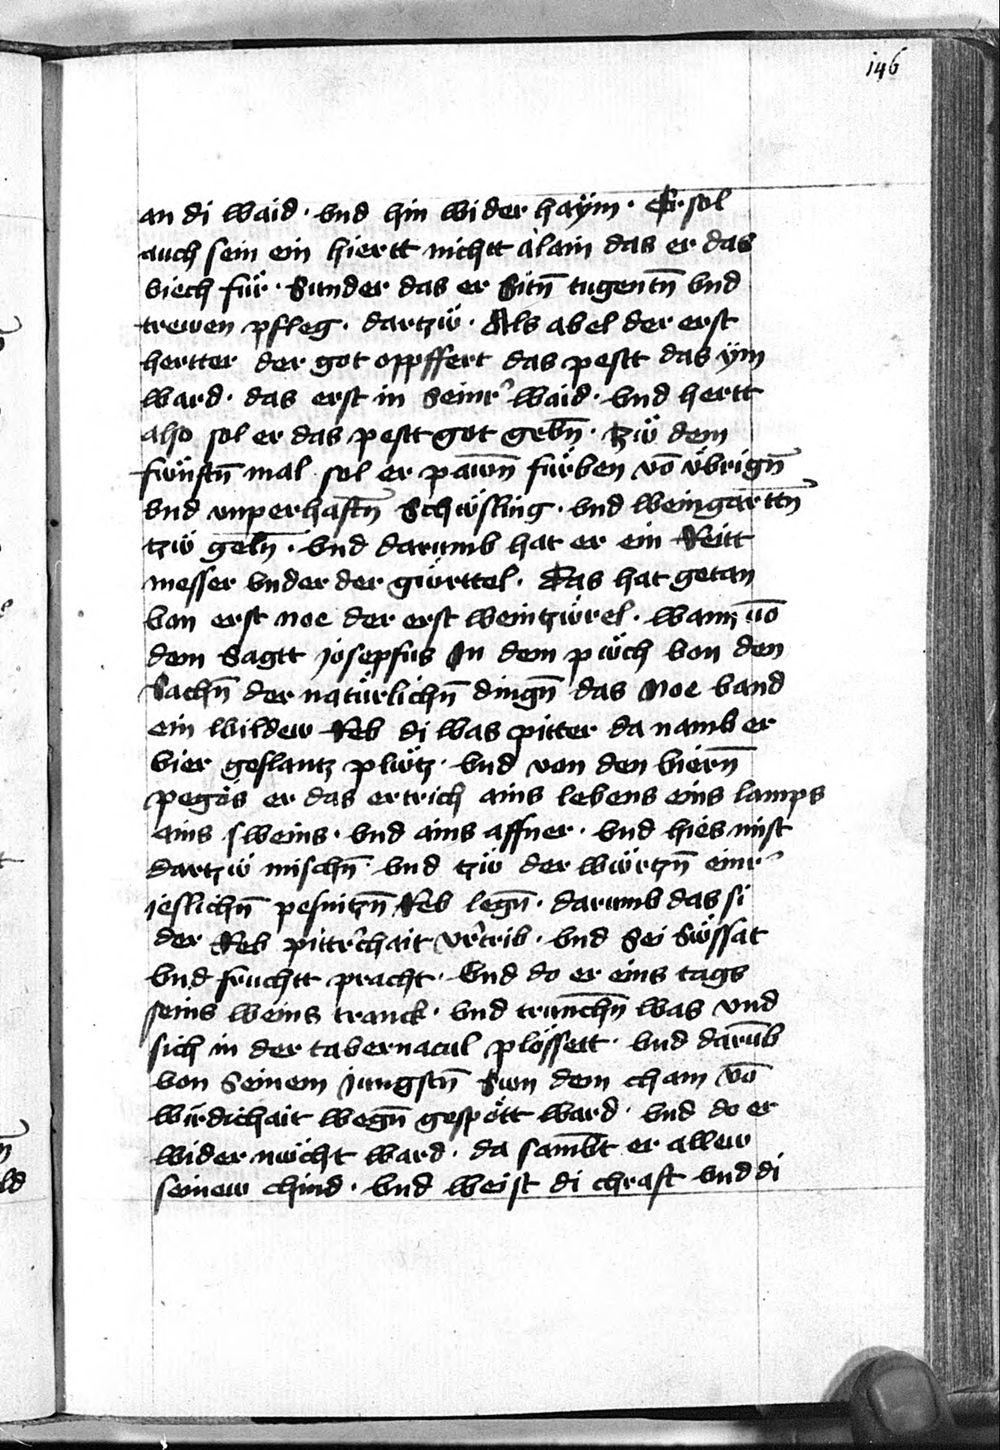 146
an di waid · vnd hin wider haÿm · Er sol
auch sein ein hiertt nichtt alain das er das
viech für · Sunder das er Sitñ tugentñ vnd
trewen pfleg · dartzů · Als abel der erst
hertter der got oppffert das pestt das ÿm
ward · das erst in seinr waid · vnd hertt
also sol er das pestt got gebñ · tzů dem
fünftñ mal sol er pawñ fürben vō übrigñ
vnd vnperhaftñ Schüsling · vnd weingarttñ
tzů gelñ · vnd darumb hat er ein Reitt
messer vnder der gürttel · Das hat getan
von erst noe der erst weintzürel · wann vō
dem Sagtt josepfus In dem půch von den
Sachñ der natürlichñ dingñ das Noe vand
ein wildew Reb di was pitter da namb er
vier geslantz plůtz · vnd von den vierñ
pegös er das ertrich ains lebens eins lamps
ains sweins · vnd ains affner · vnd hies mist
dartzů mischñ · vnd tzů der würtzñ einr
ieslichñ pesnitzñ Reb legñ · darumb das si
der Reb pittrchait vrtrib · vnd Sei Süssat
vnd fruchtt pracht · Vnd do er eins tags
seins weins tranck · vnd trunchñ was vnd
sich in der tabernacul plössett · vnd darūb
von Seinem jungstñ Sun dem cham vō
wirdichait wegñ gespött ward · vnd do er
wider nücht ward · da sambt er allew
seinew chind · vnd weist di chraft vnd di